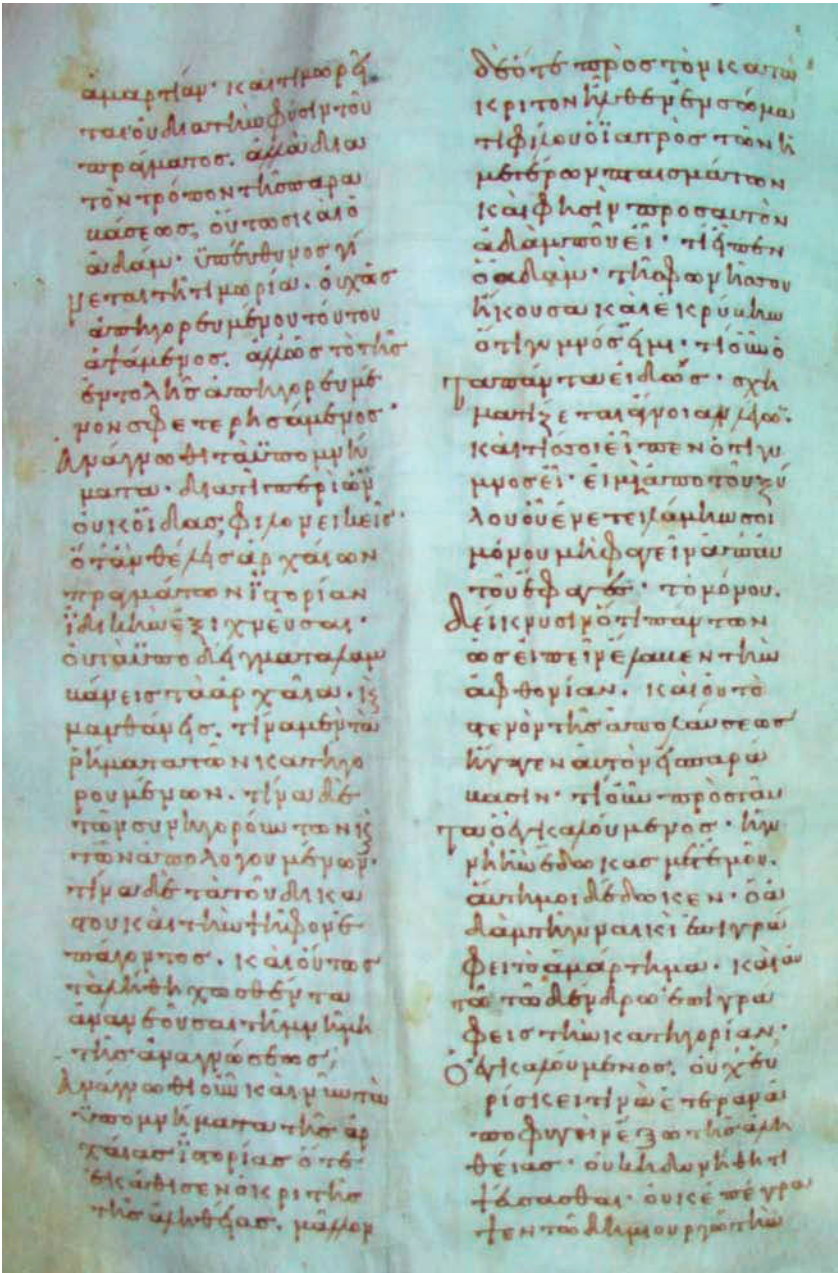 ἁμαρτίαν· καὶ τιμωρεῖ
ται οὐ διὰ τὴν φύσιν τοῦ
πράγματος. ἀλλὰ διὰ
τὸν τρόπον τῆς παρα
βάσεως, οὕτως καὶ ὁ
ἀδάμ· ὑπεύθυνος γί
νεται τῆ τιμωρία. οὐχ ὡς
ἀπηγορευμένου τούτου
ἁψάμενος. ἀλλ ὡς τὸ τῆς
ἐντολῆς ἀπηγορευμέ
νον σφετερησάμενος·
Ἀνάγνωθι τὰ ὑπομνή
ματα· διατί περὶ ὧν
οὐκ οἶδας, φιλονεικεῖς·
ὅταν θέλης ἀρχαίων
πραγμάτων ἱστορίαν
ἰδικὴν ἐξιχνεῦσαι·
οὐ τὰ ὑποδείγματα λαμ
βάνεις τὰ ἀρχαῖα. κ(αὶ)
μανθάνεις. τίνα μὲν τὰ
ῥήματα τῶν κατηγο
ρουμένων. τίνα δὲ
τῶν συνηγορούντων κ(αὶ)
τῶν ἀπολογουμένων·
τίνα δὲ τὰ τοῦ δικα
στοῦ καὶ τὴν ψῆφον ἐ
πάγοντος. καὶ οὕτως
τὰ λήθη χωσθέντα
ἀνανεοῦσαι τῆ μνήμη
τῆς ἀναγνώσεως;
Ἀνάγνωθι οὖν καὶ νῦν τὰ
ὑπομνήματα τῆς ἀρ
χαίας ἱστορίας ὅτε
ἐκάθισεν ὁ κριτὴς
τῆς ἀληθείας. μᾶλλον
δὲ ὅτε πρὸς τὸν κατά
κριτον ἦλθεν ἐν σώμα
τι φίλου οἷα πρὸς τῶν ἡ
μετέρων πταισμάτων
καὶ φησὶν πρὸς αὐτὸν
ἀδὰμ ποῦ εἶ· τί εἶπεν
ὁ ἀδάμ· τῆς φωνῆς σου
ἤκουσα καὶ ἐκρύβην
ὅτι γυμνός εἰμι· τί οὖν ὁ
τὰ πάντα εἰδώς· σχη
ματίζεται ἄγνοιαν
καὶ τίς σοι εἶπεν ὅτι γυ
μνὸς εἶ· εἰ μὴ ἀπὸ τοῦ ξύ
λου οὗ ἐνετειλάμην σοι
μόνου μὴ φαγεῖν ἀπ αὐ
τοῦ ἔφαγες· τὸ μόνου.
Δείκνυσιν ὅτι πάντων
ὡς εἰπεῖν ἔλαβεν τὴν
ἀφθονίαν. καὶ οὐ τὸ
στενὸν τῆς ἀπολαύσεως
ἤγαγεν αὐτὸν εἰς παρά
βασιν· τί οὖν πρὸς ταῦ
τα ὁ ἐγκαλούμενος· ἡ γυ
νὴ ἣν ἔδωκας μετ ἐμοῦ.
αὕτη μοι δέδωκεν· ὁ ἀ
δὰμ τῆ γυναικὶ ἐπιγρά
φει τὸ ἁμάρτημα· καὶ αὐ
τῶ τῶ δένδρω ἐπιγρά
φεις τὴν κατηγορίαν·
Ὁ ἐγκαλούμενος. οὐχ εὑ
ρίσκει τινὰ ἑτέραν ἀ
ποφυγεῖν ἔξω τῆς ἀλη
θείας· οὐκ ἠδυνήθη τι
ψεύσασθαι· οὐκ ἐπέγρα
ψεν τῶ δημιουργῶ τὴν